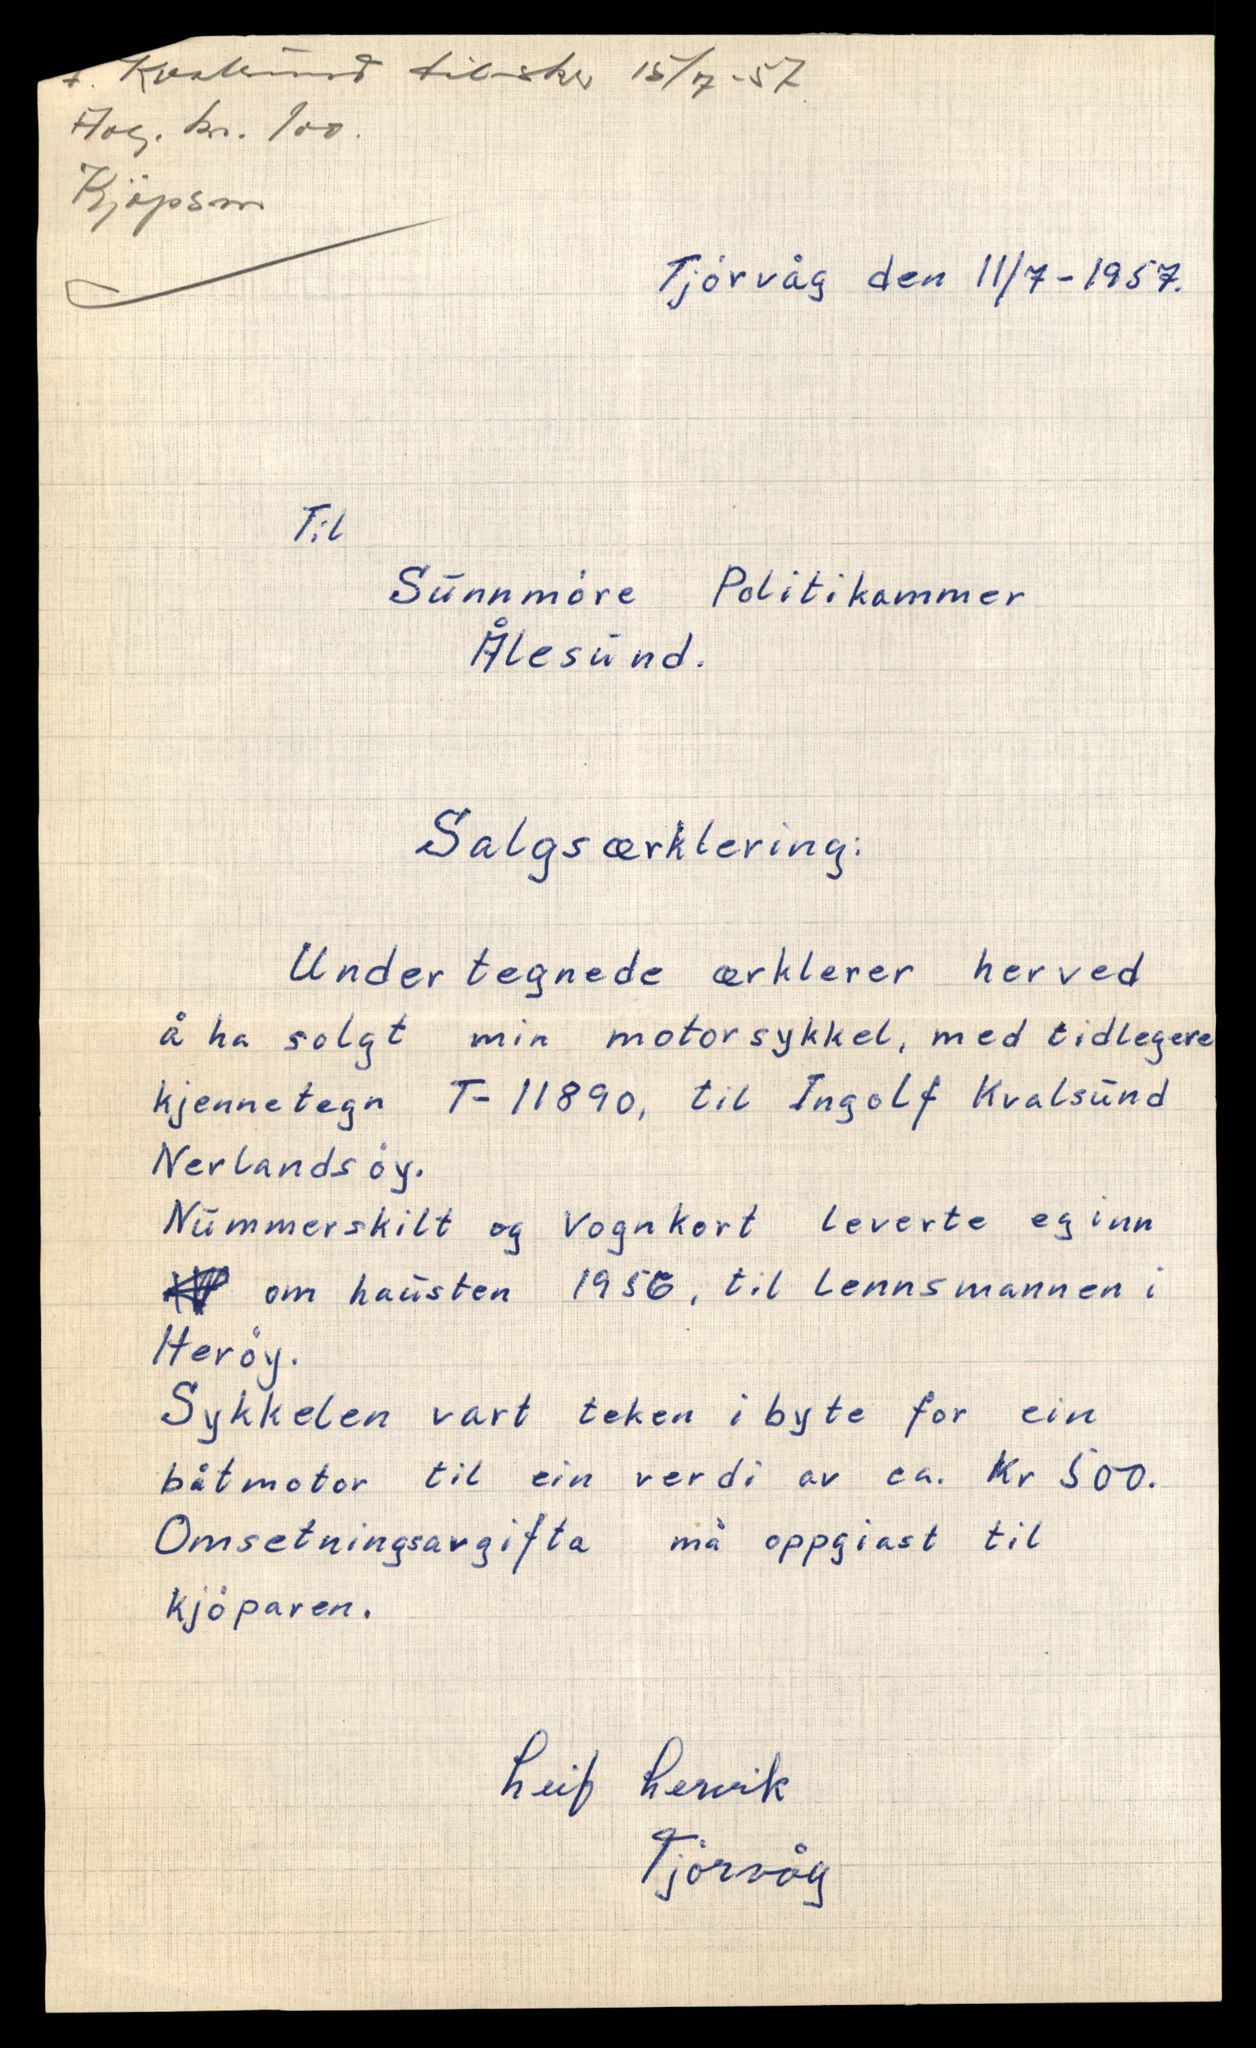 Kvalsund tilskr 15/7-57
Avg. kr. 100.
Kjöpsm
Tjörvåg den 11/7-1957.
Til
Sunnmöre Politikammer
Ålesund.
Salgsærklering:
Undertegnede ærklerer herved
å ha solgt min motorsykkel, med tidlegere
kjennetegn T-11890, til Ingolf Kvalsund
Nerlandsöy.
Nummerskilt og Vognkort leverte eg inn
om hausten 1956, til Lennsmannen i
Heröy.
Sykkelen vart teken i byte for ein
båtmotor til ein verdi av ca. Kr 500.
Omsetningsavgifta må oppgiast til
kjöparen.
Leif Lervik
Tjörvåg